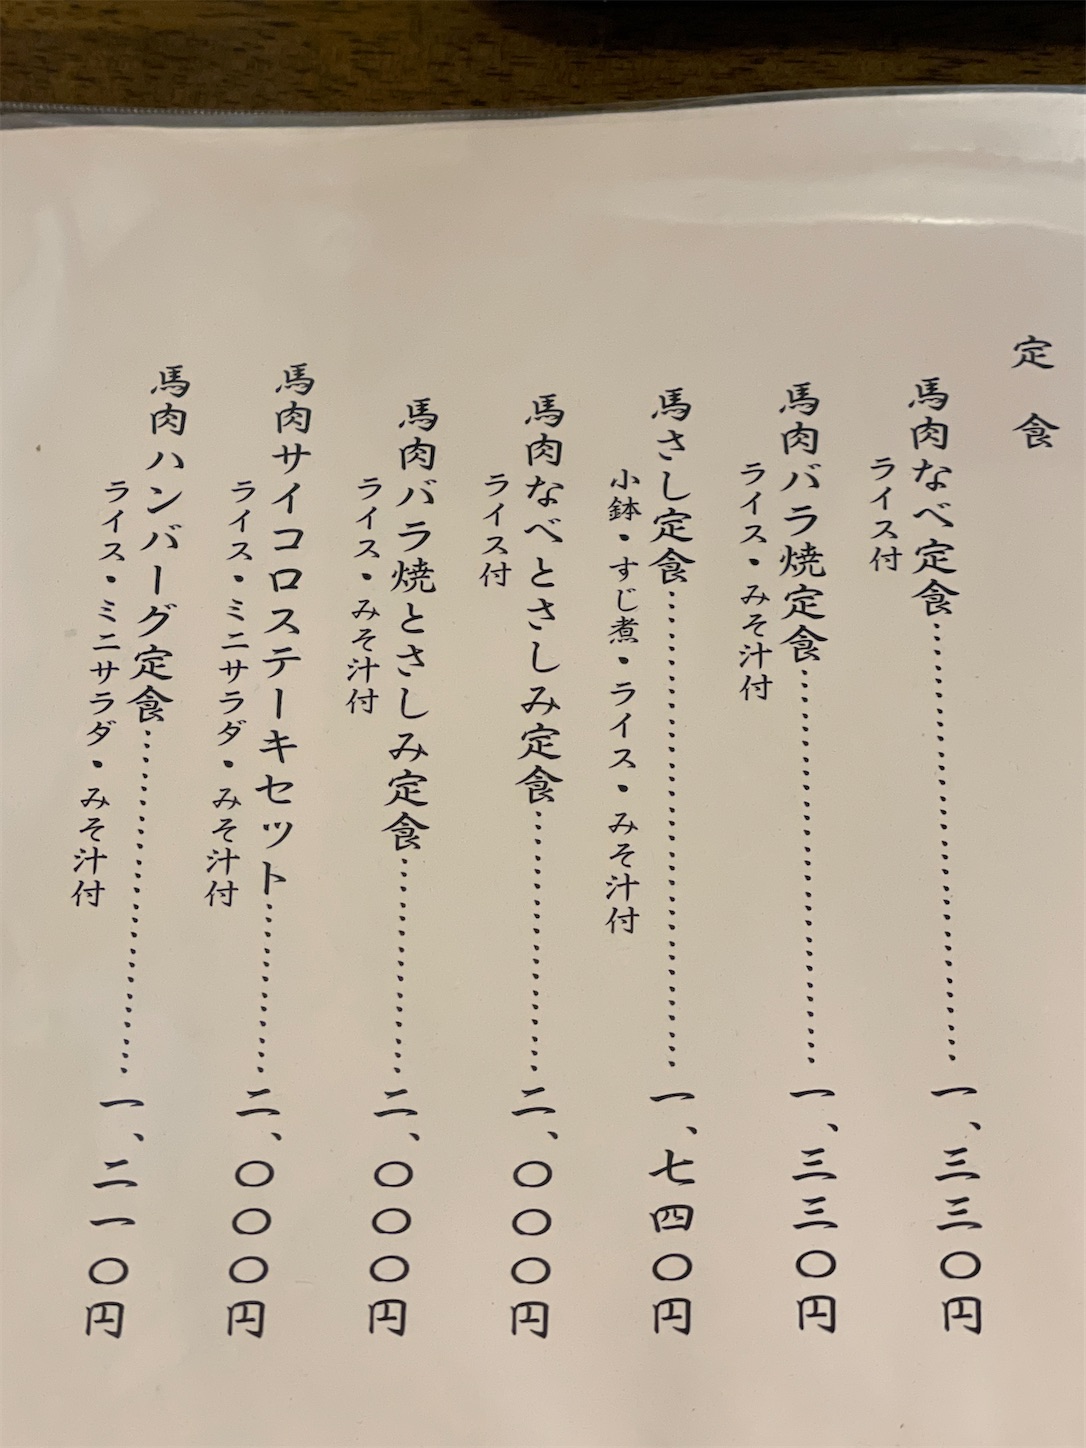 定食
馬肉なべ定食……………一、三三〇円
ライス付
馬肉バラ焼定食……………一、三三〇円
ライス・みそ汁付
馬さし定食……………一、七四〇円
小鉢・すじ煮・ライス・みそ汁付
馬肉なべとさしみ定食……………二、〇〇〇円
ライス付
馬肉バラ焼とさしみ定食……………二、〇〇〇円
ライス・みそ汁付
馬肉サイコロステーキセット……………二、〇〇〇円
ライス・ミニサラダ・みそ汁付
馬肉ハンバーグ定食……………一、二一〇円
ライス・ミニサラダ・みそ汁付